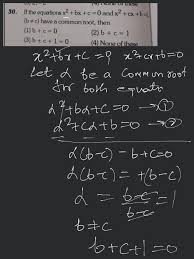 (4) None of these
30. If the equations x² + bx + c = 0 and x² + cx + b = 0
(b ≠ c) have a common root, then
(1) b + c = 0 (2) b + c = 1
(3) b + c + 1 = 0 (4) None of these
x²+bx+c=0, x²+cx+b=0
Let α be a common root
for both equatio
α²+bα+c=0 —①
α²+cα+b=0 —②
α(b-c) - b+c=0
α(b-c) = +(b-c)
α = b-c/b-c
b≠c
b+c+1=0